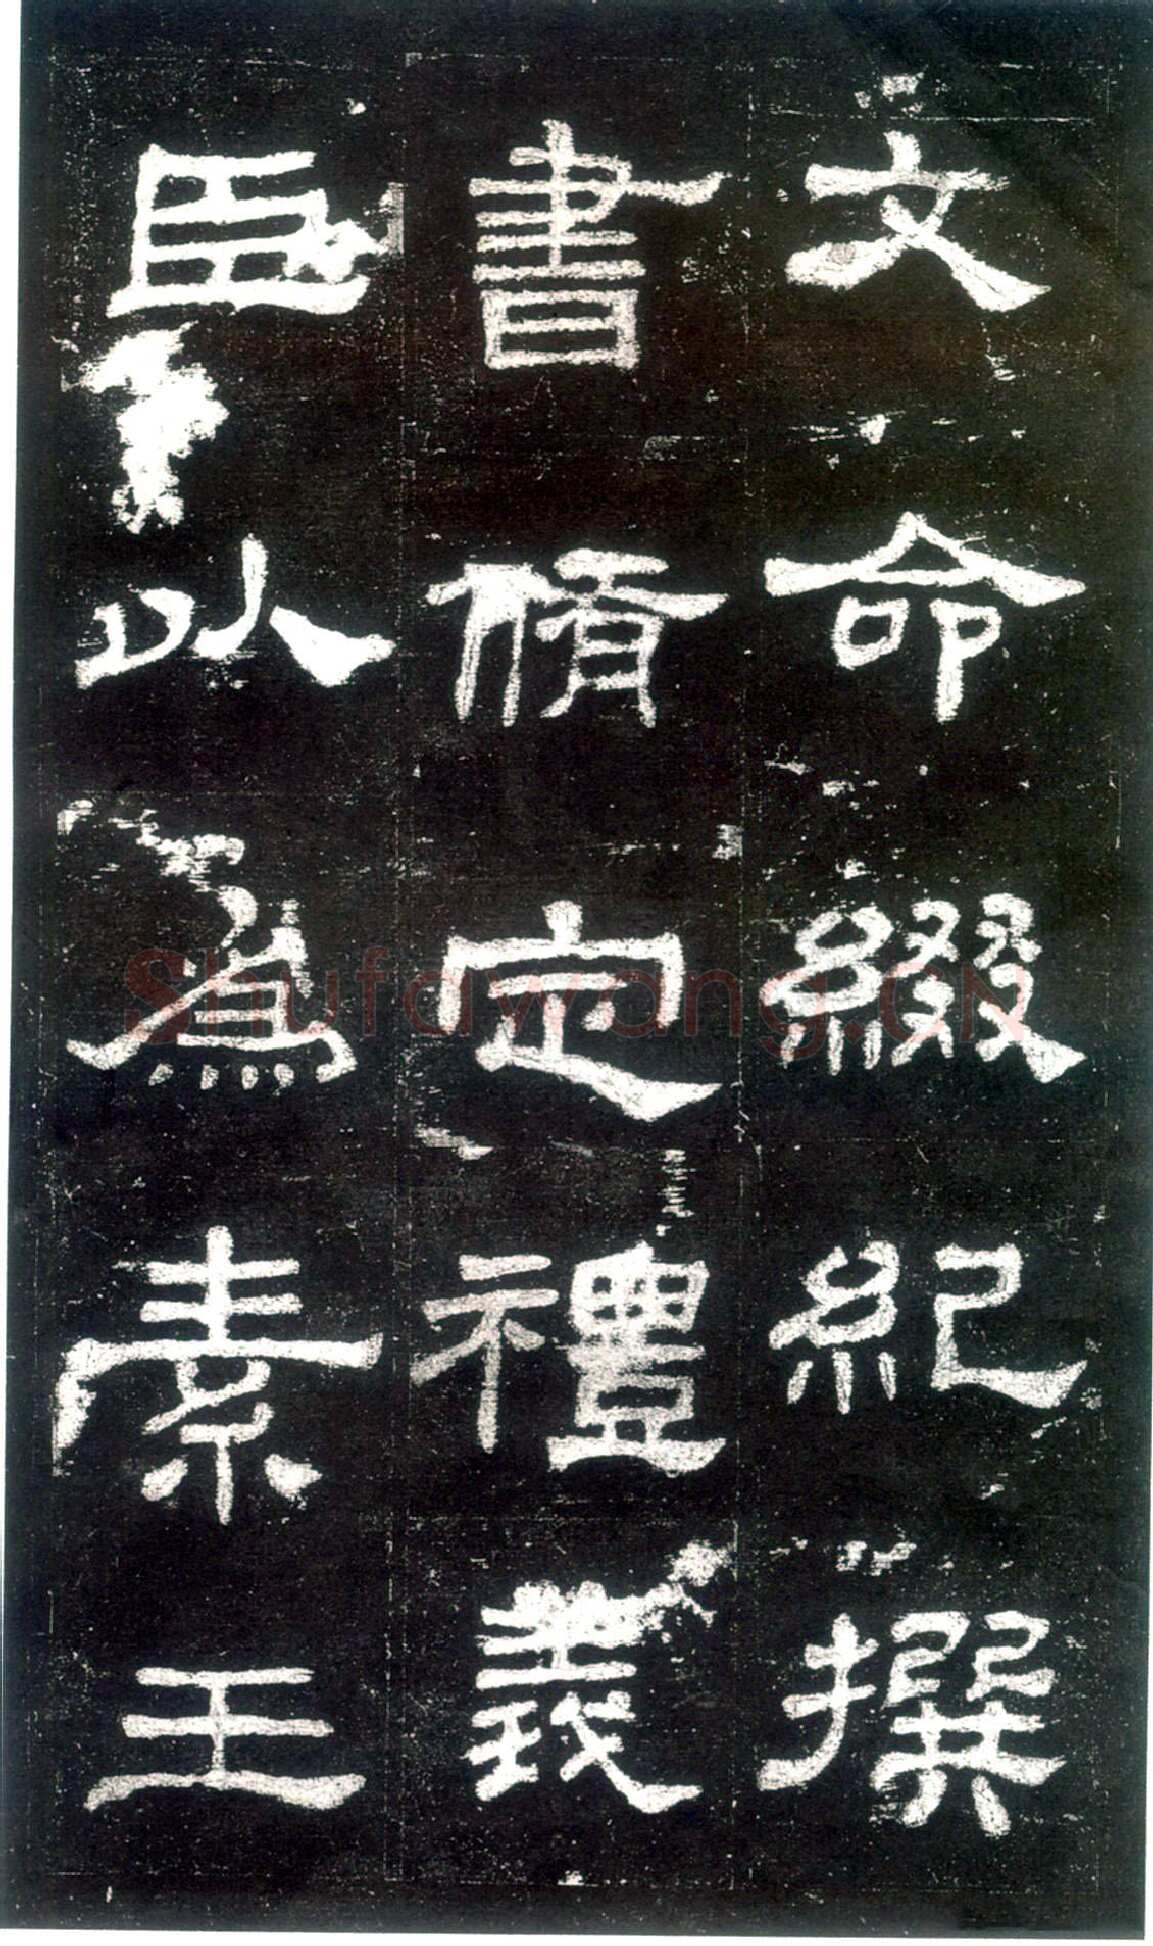 文命綴紀撰
書脩定禮義
臣以為素王
Shufawang.CN